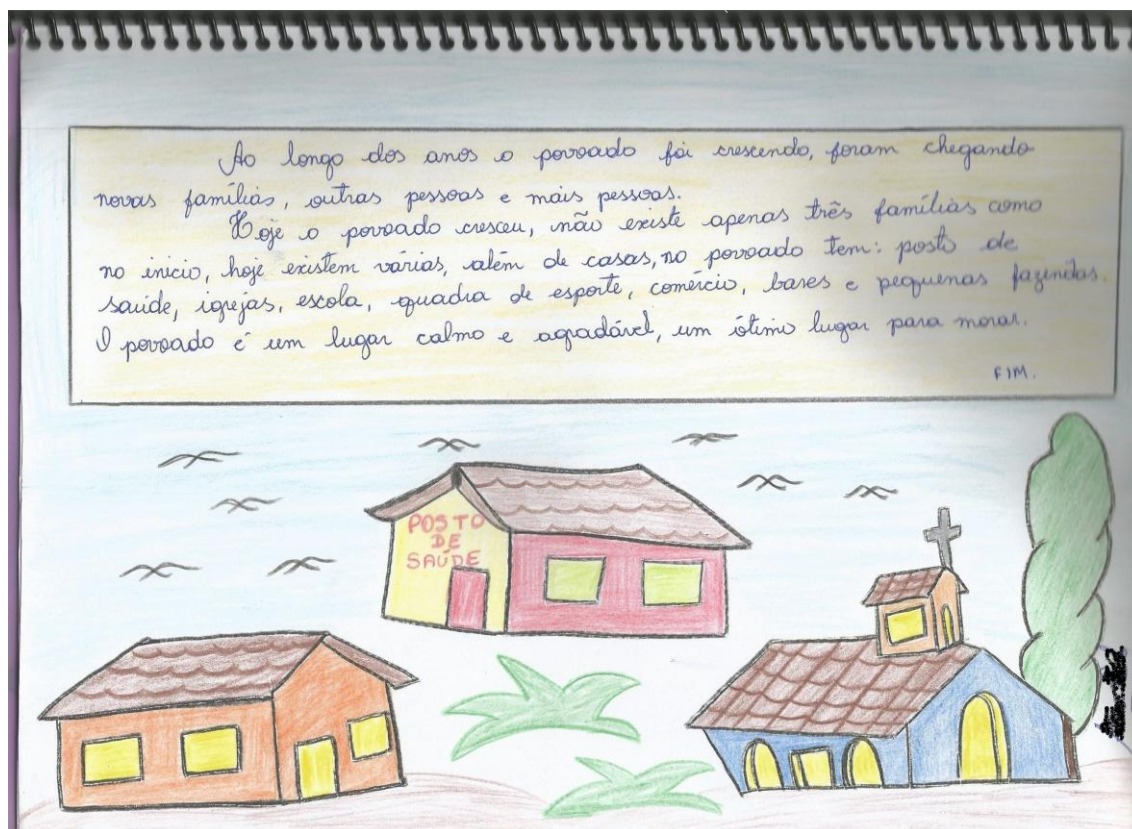 Ao longo dos anos o povoado foi crescendo, foram chegando
novas famílias, outras pessoas e mais pessoas.
Hoje o povoado cresceu, não existe apenas três famílias como
no início, hoje existem várias, além de casas, no povoado tem: posto de
saúde, igrejas, escola, quadra de esporte, comércio, bares e pequenas fazendas.
O povoado é um lugar calmo e agradável, um ótimo lugar para morar.
FIM.
POSTO
DE
SAÚDE